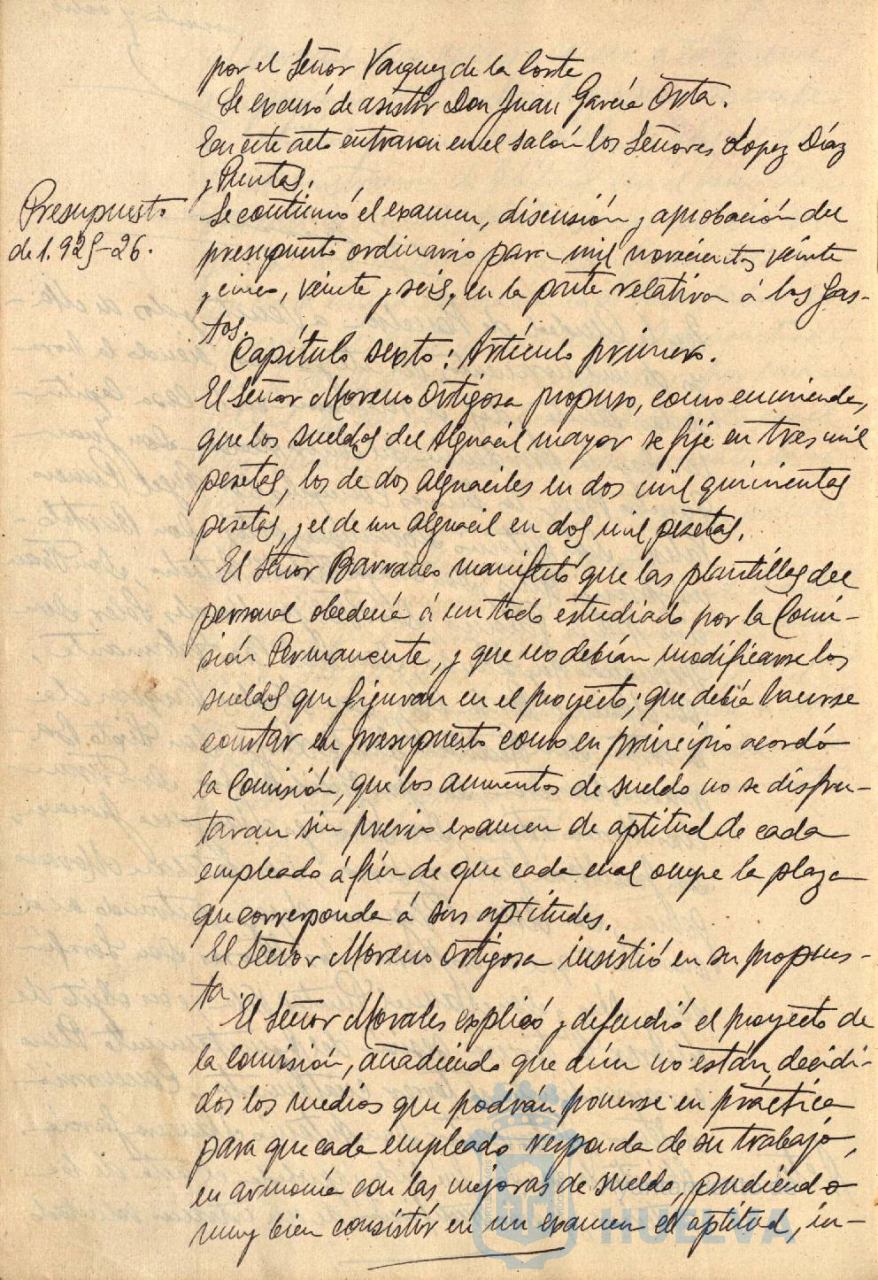 por el Señor Vazquez de la Corte
Se excusó de asistir Don Juan García Orta.
En este acto entraron en el salón los Señores Lopez Díaz
y Puentas.
Presupuesto
de 1.925-26.
Se continuó el examen, discusión y aprobación del
presupuesto ordinario para mil novecientos veinte
y cinco, veinte y seis, en la parte relativa á los Gas-
tos.
Capítulo sexto: Artículo primero.
El Señor Moreno Ortigosa propuso, como enmienda,
que los sueldos del Alguacil mayor se fije en tres mil
pesetas, los de dos Alguaciles en dos mil quinientas
pesetas, y el de un Alguacil en dos mil pesetas.
El Señor Barranco manifestó que las plantillas del
personal obedecía á un todo estudiado por la Comi-
sión Permanente, y que no debían modificarse los
sueldos que figuran en el proyecto; que debía hacerse
constar en presupuesto como en principio acordó
la Comisión, que los aumentos de sueldo no se disfru-
taran sin previo examen de aptitud de cada
empleado á fin de que cada cual ocupe la plaza
que corresponda á sus aptitudes.
El Señor Moreno Ortigosa insistió en su propues-
ta.
El Señor Morales explicó y defendió el proyecto de
la Comisión, añadiendo que aún no están decidi-
dos los medios que podrán ponerse en práctica
para que cada empleado responda de su trabajo,
en armonía con las mejoras de sueldo, pudiendo
muy bien consistir en un examen el aptitud, in-
HUELVA